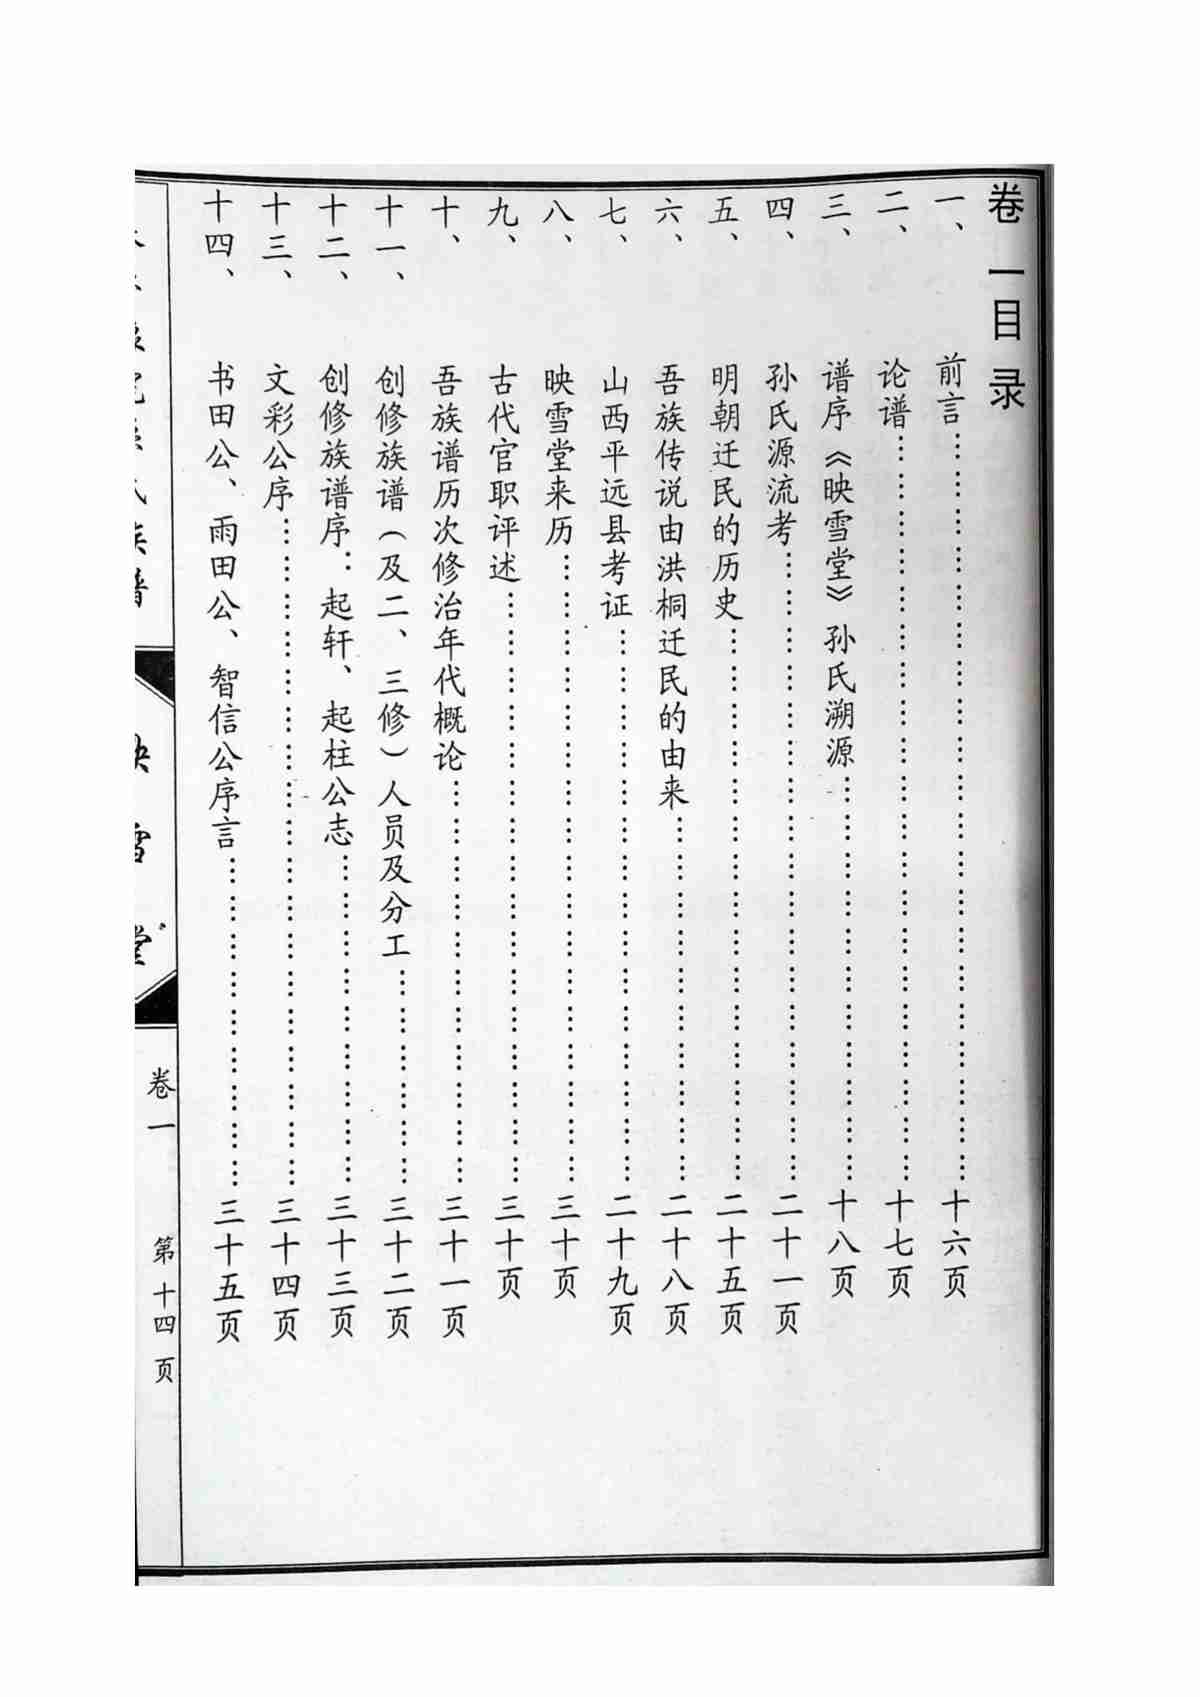 卷一目录
一、前言……十六页
二、论谱……十七页
三、谱序《映雪堂》孙氏溯源……十八页
四、孙氏源流考……二十一页
五、明朝迁民的历史……二十五页
六、吾族传说由洪桐迁民的由来……二十八页
七、山西平远县考证……二十九页
八、映雪堂来历……三十页
九、古代官职评述……三十页
十、吾族谱历次修治年代概论……三十一页
十一、创修族谱（及二、三修）人员及分工……三十二页
十二、创修族谱序：起轩、起柱公志……三十三页
十三、文彩公序……三十四页
十四、书田公、雨田公、智信公序言……三十五页
氏族谱
映雪堂
卷一
第十四页